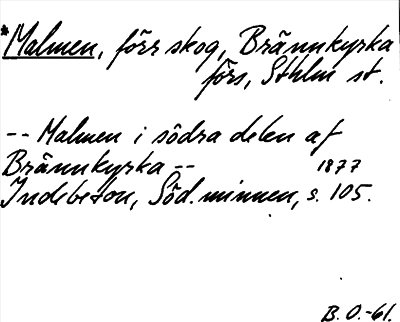 *Malmen, förr skog, Brännkyrka
förs, Sthlm st.
-- Malmen i södra delen af
Brännkyrka -- 1877
Indebetou, Söd. minnen, s. 105.
B. O.-61.